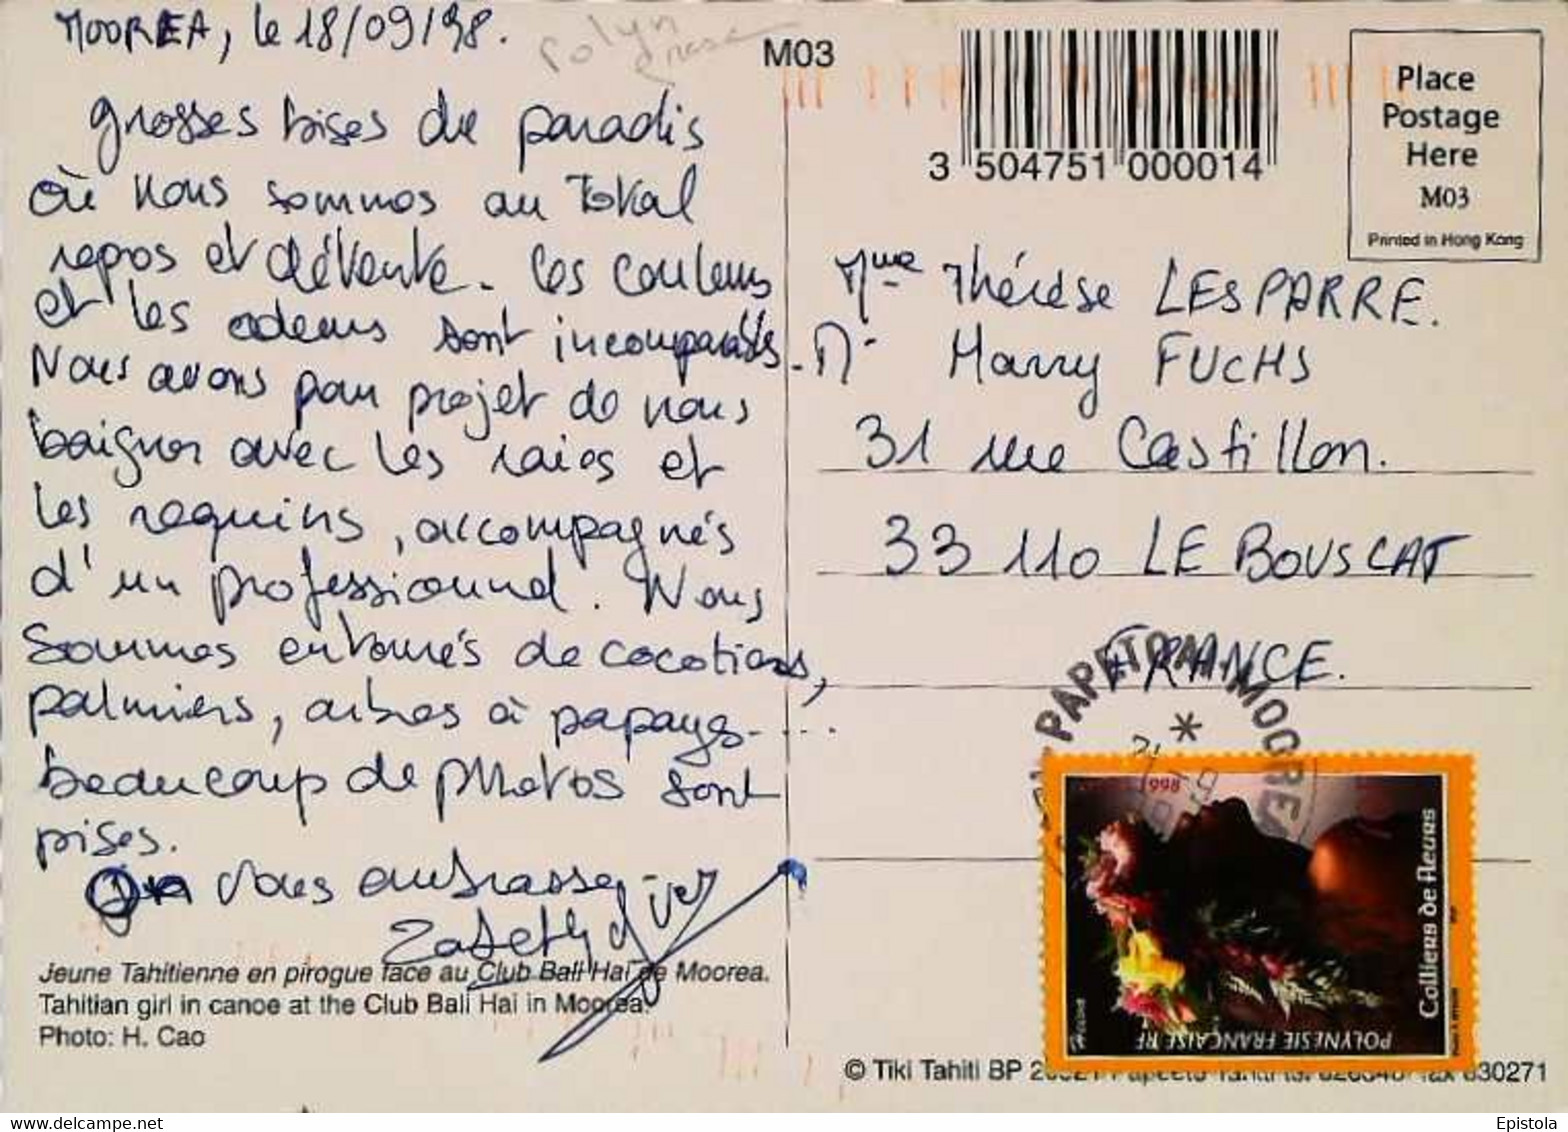 MOOREA, le 18/09/98.
Polyn
grosses bises du paradis
où nous sommes au total
repos et détente. Les couleurs
et les odeurs sont incomparables.
Nous avons pour projet de nous
baigner avec les raies et
les requins, accompagnés
d'un professionnel. Nous
sommes entourés de cocotiers,
palmiers, arbres à papayes....
beaucoup de photos sont
prises.
On vous embrasse
Jeune Tahitienne en pirogue face au Club Bali Hai de Moorea.
Tahitian girl in canoe at the Club Bali Hai in Moorea.
Photo: H. Cao
M03
3 504751 000014
Place
Postage
Here
M03
Printed in Hong Kong
Mme Thérèse LESPARRE.
Mr Harry FUCHS
31 rue Castillon.
33 110 LE BOUSCAT
FRANCE.
PAPETOAI-MOOREA
1998
Colliers de fleurs
POLYNÉSIE FRANÇAISE RF
© Tiki Tahiti BP Papeete Tahiti fax 630271
Delcampe.net
Epistola